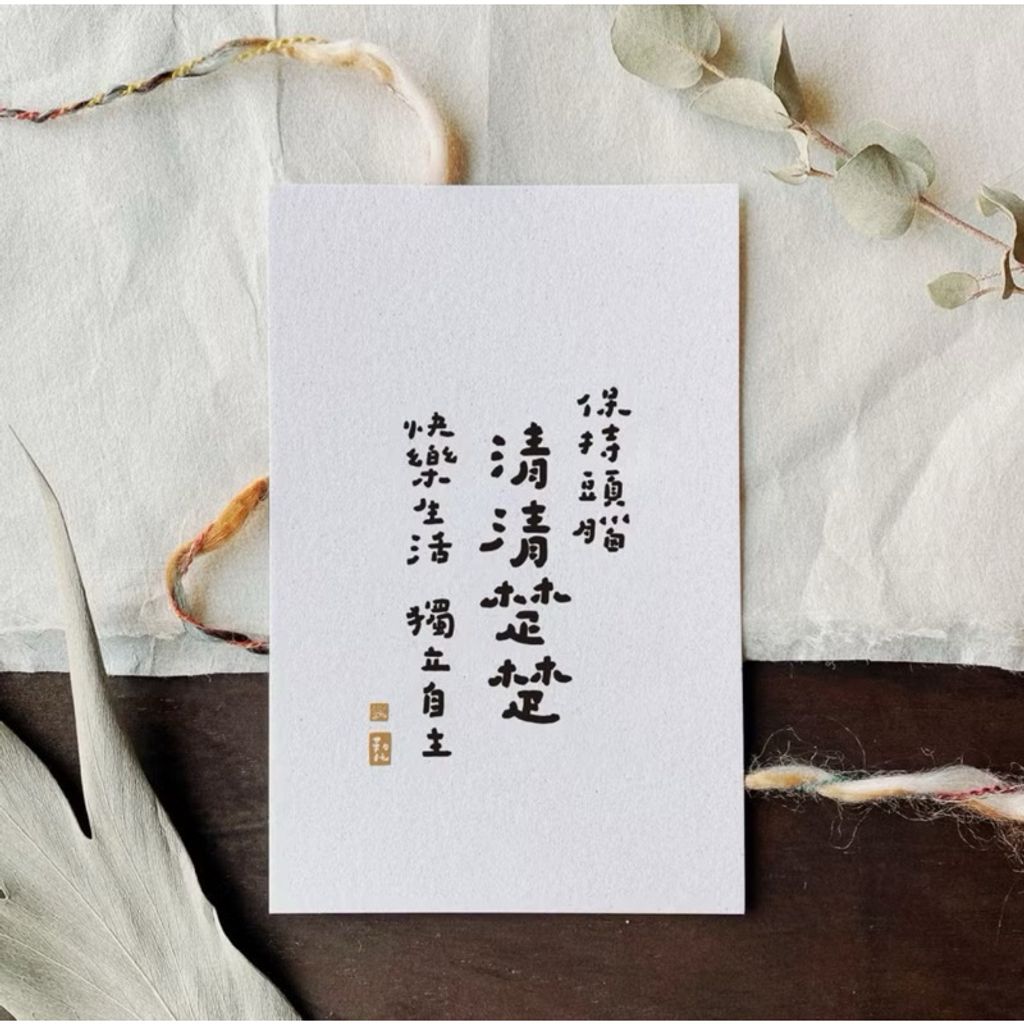 保持頭腦
清清楚楚
快樂生活 獨立自主